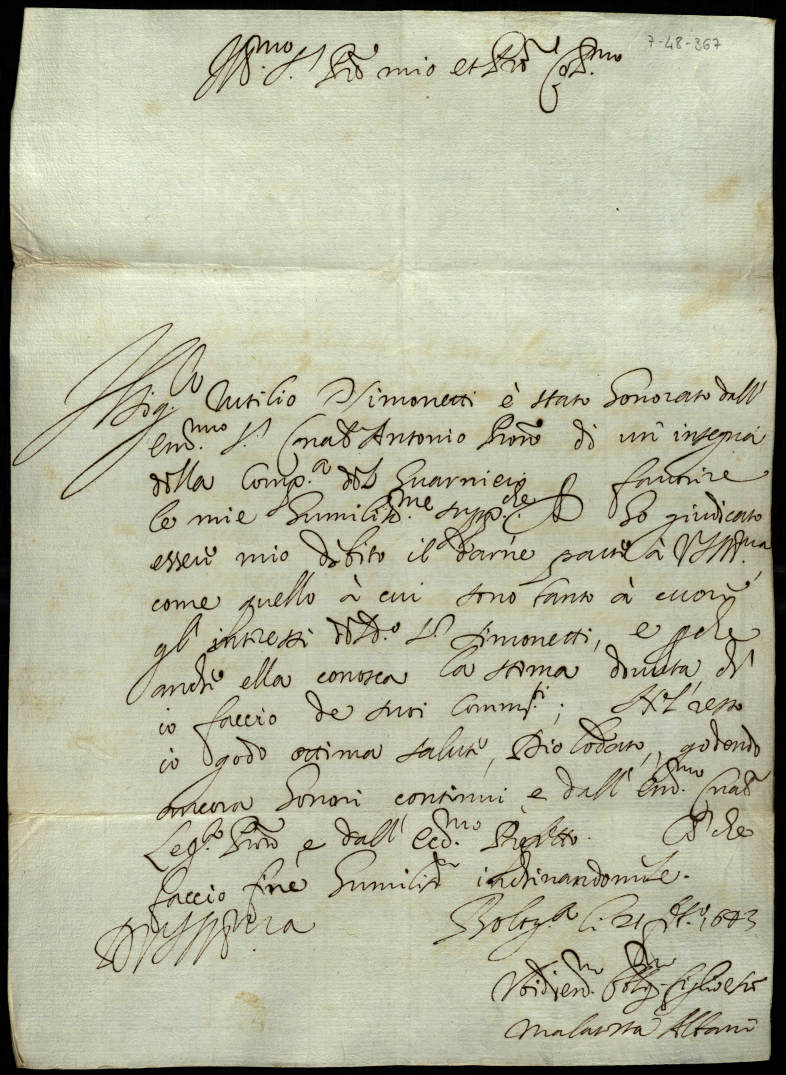 7-48-367
Ill.mo S.r Prõ mio et Prõn Col.mo
Sig.r Rutilio Simonetti è stato honorato dall'
Em.mo S.r Card Antonio Prõne di un' insegna
della Comp.a del Guarnieri favorire
le mie humiliss.me supp.che Ho giudicato
essere mio debito il darne parte à VS Ill.ma,
come quello à cui sono tanto à cuore
gl' interessi del d.o S.r Simonetti, e pche
anche ella conosca la stima dovuta, ch'
io faccio de suoi Comm.ti; Nel resto
io godo ottima salute, Dio lodato, godendo
ancora honori continui, e dall' Em.mo Card
Leg.to Prõne e dall' Ecc.mo Prefetto. Co' che
faccio fine humiliss.te inchinandomele.
Di VS Ill.ma
Bolog.a li 21 1643
malatesta Albani